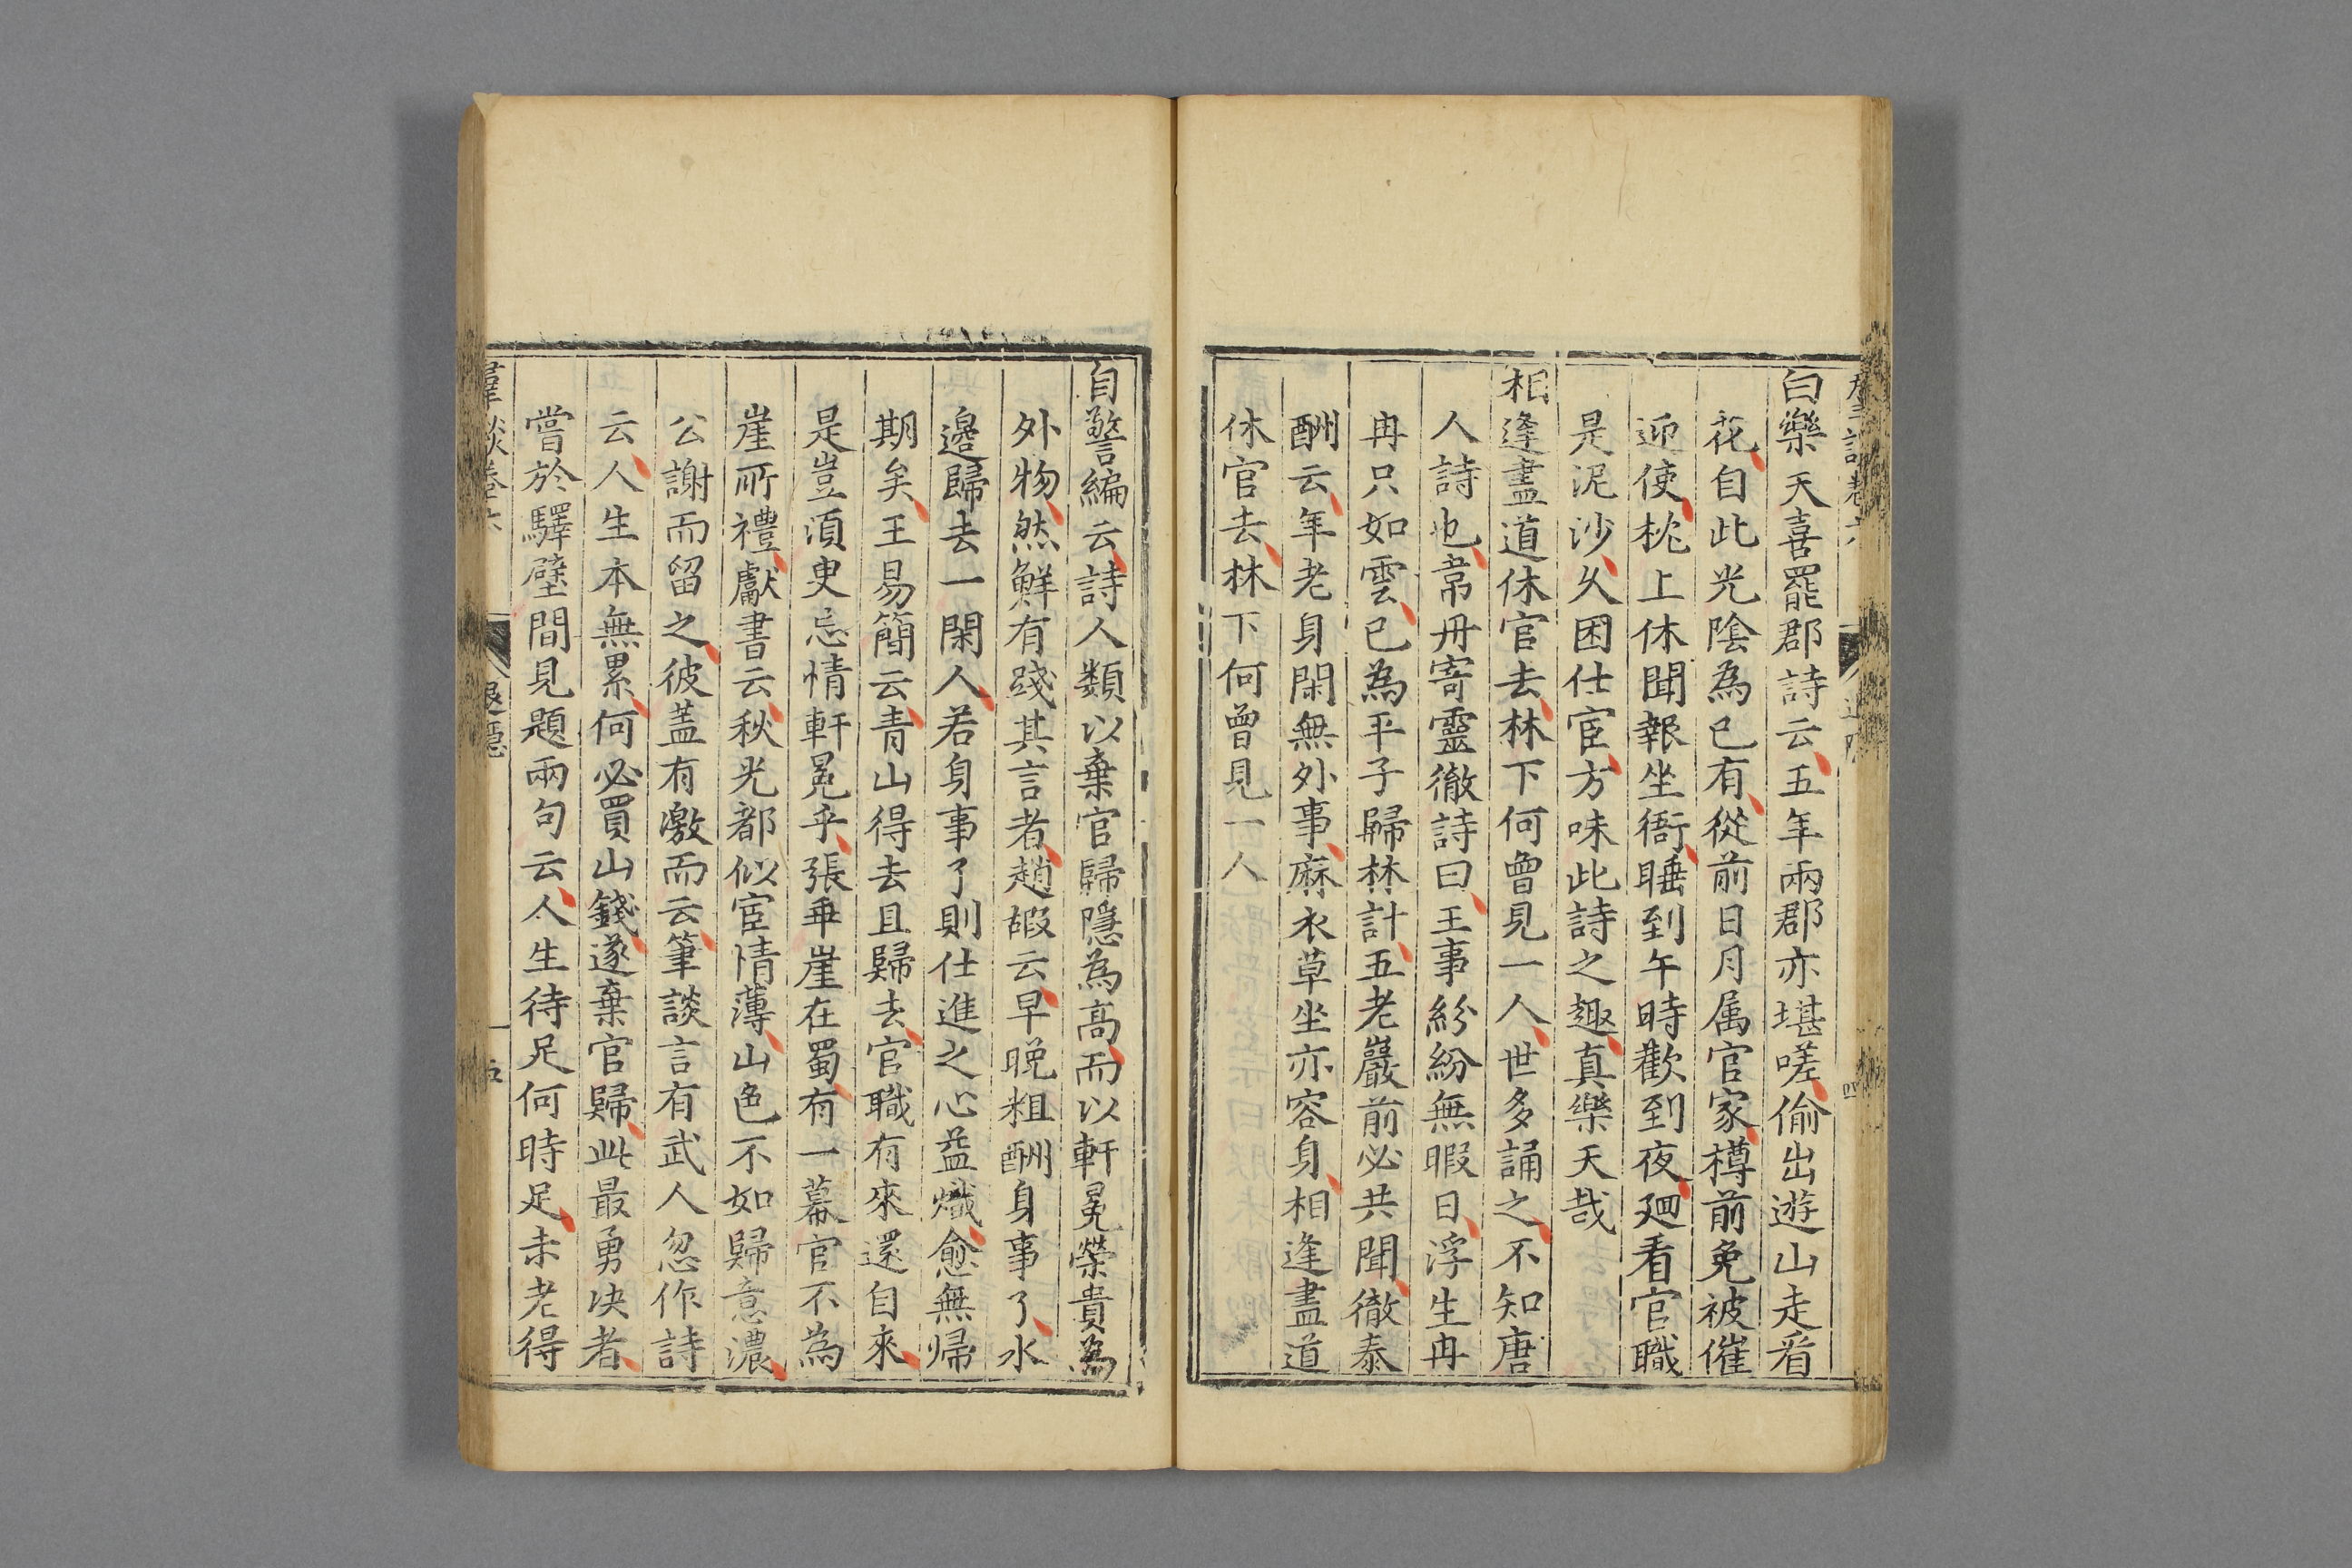 白樂天喜罷郡詩云五年兩郡亦堪嗟偷出遊山走看
花自此光陰為已有從前日月属官家樽前免被催
迎使枕上休聞報坐衙睡到午時歡到夜廻看官職
是泥沙久困仕宦方味此詩之趣真樂天哉
相逢盡道休官去林下何曾見一人世多誦之不知唐
人詩也韋丹寄靈徹詩曰王事紛紛無暇日浮生冉
冉只如雲已為平子歸林計五老巖前必共聞徹泰
酬云年老身閑無外事麻衣草坐亦容身相逢盡道
休官去林下何曾見一人
自警編云詩人類以棄官歸隱為高而以軒冕榮貴為
外物然鮮有踐其言者趙嘏云早晚粗酬身事了水
邉歸去一閑人若身事了則仕進之心益熾愈無帰
期矣王易簡云青山得去且歸去官職有來還自來
是豈湏臾忘情軒冕乎張乖崖在蜀有一幕官不為
崖所禮獻書云秋光都似宦情薄山色不如歸意濃
公謝而留之彼盖有激而云筆談言有武人忽作詩
云人生本無累何必買山錢遂棄官歸此最勇决者
嘗於驛壁間見題兩句云人生待足何時足未老得
羣談卷之六 退隱 五